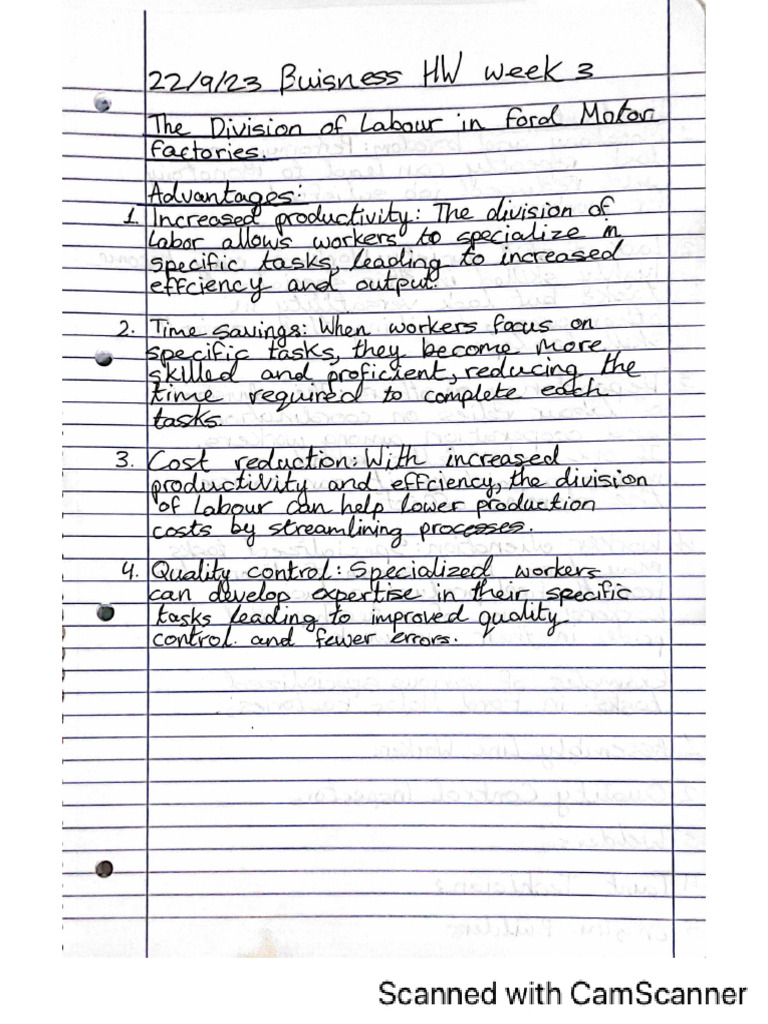 22/9/23 Buisness HW week 3
The Division of Labour in Ford Motor
factories.
Advantages:
1. Increased productivity: The division of
Labor allows workers to specialize in
specific tasks, leading to increased
effciency and output.
2. Time savings: When workers focus on
specific tasks, they become more
skilled and proficient, reducing the
time required to complete each
tasks.
3. Cost reduction: With increased
productivity and effciency, the division
of Labour can help lower production
costs by streamlining processes.
4. Quality control: Specialized workers
can develop expertise in their specific
tasks leading to improved quality
control and fewer errors.
Scanned with CamScanner